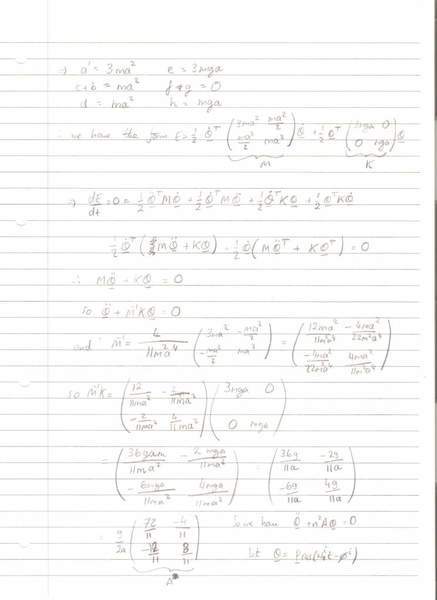 ⇒ a' = 3ma² e = 3mga
c+b = ma² f+g = 0
d = ma² h = mga
∴ we have the form E = ½ Q̇ᵀ (3ma² ma²/2 ; ma²/2 ma²) Q̇ + ½ Qᵀ (3mga 0 ; 0 mga) Q
M K
⇒ dE/dt = 0 = ½ Q̈ᵀMQ̇ + ½ Q̇ᵀMQ̈ + ½ Q̇ᵀKQ + ½ QᵀKQ̇
½ Q̇ᵀ(MQ̈ + KQ) + ½ Q̇(MQ̈ᵀ + KQᵀ) = 0
∴ MQ̈ + KQ = 0
so Q̈ + M⁻¹KQ = 0
and M⁻¹ = 4/11m²a⁴ (3ma² -ma²/2 ; -ma²/2 ma²) = (12ma²/11m²a⁴ -4ma²/22m²a⁴ ; -4ma²/22m²a⁴ 4ma²/11m²a⁴)
so M⁻¹K = (12/11ma² -2/11ma² ; -2/11ma² 4/11ma²) (3mga 0 ; 0 mga)
= (36gam/11ma² -2mga/11ma² ; -6mga/11ma² 4mga/11ma²) = (36g/11a -2g/11a ; -6g/11a 4g/11a)
= g/2a (72/11 -4/11 ; -12/11 8/11) So we have Q̈ + n²AQ = 0
A Let Q =